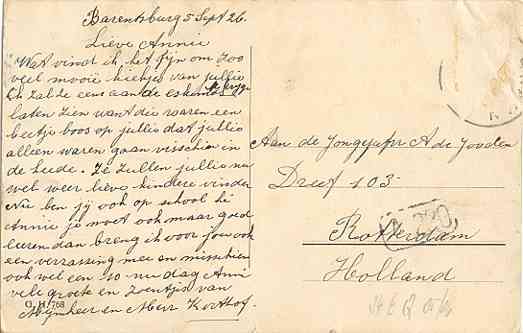 Barentsburg 5 Sept 26.
Lieve Annie
Wat vindt ik het fijn om zoo
veel mooie kiekjes van jullie
Ik zal ze eens aan de eskimo's
laten zien want die waren een
beetje boos op jullie dat jullie
alleen waren gaan visschen in
de heede. Ze zullen jullie nu
wel weer lieve kindere vinden
Nu ben jij ook op school hé
Annie je moet ook maar goed
leeren dan breng ik voor jou ook
een verrassing mee en misschien
ook wel een zo nu dag Anni
vele groete en zoentjes van
Mijnheer en Mevr Korthof.
G. H. 768
Aan de Jongejufvr A de Jooden
Dreef 103
Rotterdam
Holland